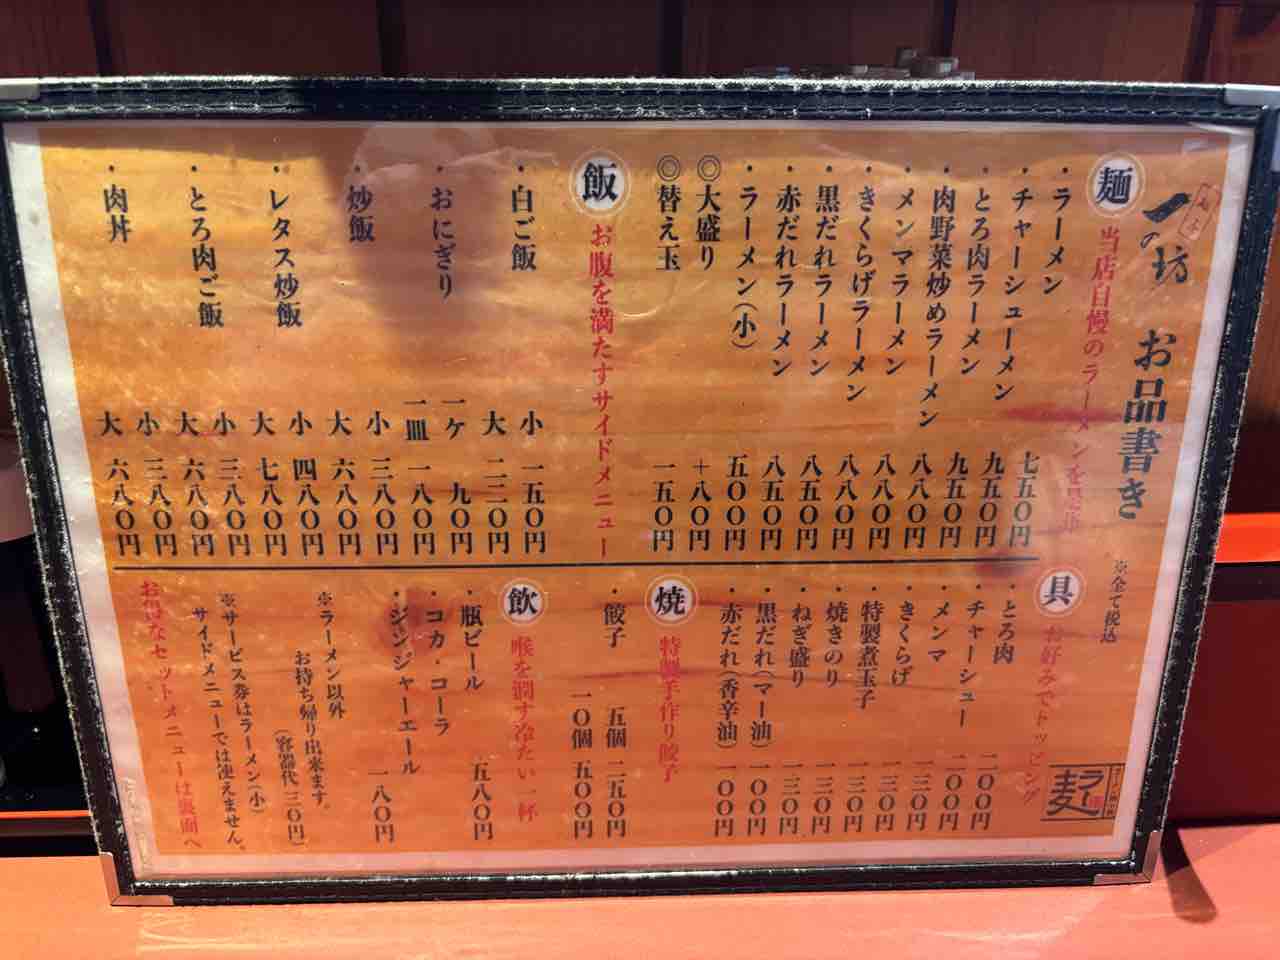 一の坊 お品書き
※全て税込
麺 当店自慢のラーメンを是非
・ラーメン 七五〇円
・チャーシューメン 九五〇円
・とろ肉ラーメン 九五〇円
・肉野菜炒めラーメン 八八〇円
・メンマラーメン 八八〇円
・きくらげラーメン 八八〇円
・黒だれラーメン 八五〇円
・赤だれラーメン 八五〇円
・ラーメン(小) 五〇〇円
◎大盛り +八〇円
◎替え玉 一五〇円
飯 お腹を満たすサイドメニュー
・白ご飯 小 一五〇円
大 二二〇円
・おにぎり 一ケ 九〇円
一皿 一八〇円
・炒飯 小 三八〇円
大 六八〇円
・レタス炒飯 小 四八〇円
大 七八〇円
・とろ肉ご飯 小 三八〇円
大 六八〇円
・肉丼 小 三八〇円
大 六八〇円
具 お好みでトッピング
・とろ肉 二〇〇円
・チャーシュー 二〇〇円
・メンマ 一三〇円
・きくらげ 一三〇円
・特製煮玉子 一三〇円
・焼きのり 一三〇円
・ねぎ盛り 一三〇円
・黒だれ(マー油) 一〇〇円
・赤だれ(香辛油) 一〇〇円
焼 特製手作り餃子
・餃子 五個 二五〇円
一〇個 五〇〇円
飲 喉を潤す冷たい一杯
・瓶ビール 五八〇円
・コカ・コーラ
・ジンジャーエール 一八〇円
※ラーメン以外
お持ち帰り出来ます。
(容器代 三〇円)
※サービス券はラーメン(小)
サイドメニューでは使えません。
お得なセットメニューは裏面へ